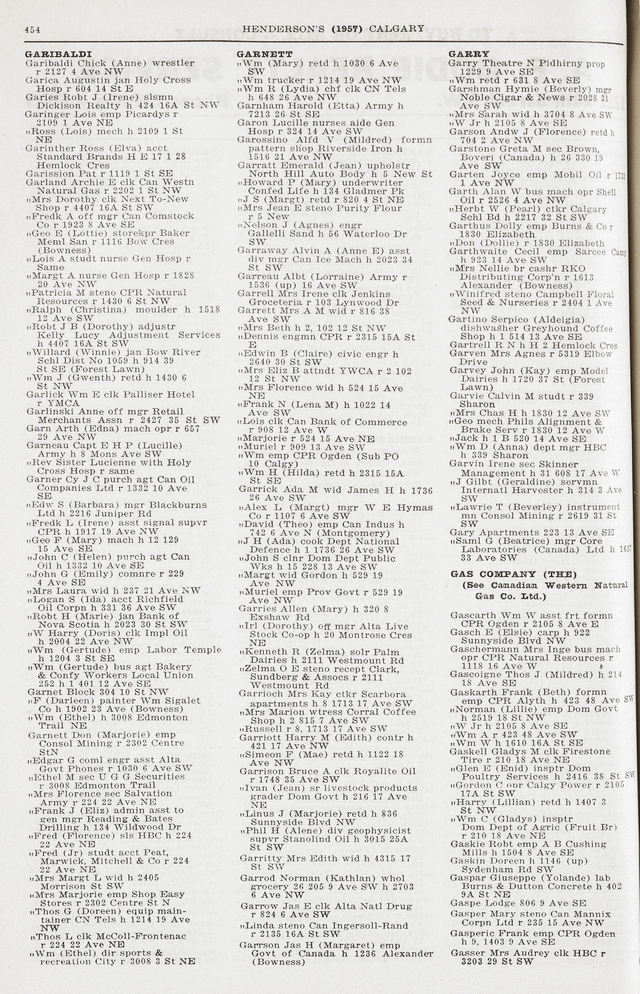 454
HENDERSON'S (1957) CALGARY
GARIBALDI
Garibaldi Chick (Anne) wrestler
r 2127 4 Ave NW
Garica Augustin jan Holy Cross
Hosp r 604 14 St E
Garies Robt J (Irene) slsmn
Dickison Realty h 424 16A St NW
Garinger Lois emp Picardys r
2109 1 Ave NE
„Ross (Lois) mech h 2109 1 St
NE
Garinther Ross (Elva) acct
Standard Brands H E 17 1 28
Hemlock Cres
Garission Pat r 1119 1 St SE
Garland Archie E clk Can Westn
Natural Gas r 2202 1 St NW
„Mrs Dorothy clk Next To-New
Shop r 4407 16A St SW
„Fredk A off mgr Can Comstock
Co r 1923 8 Ave SE
„Geo E (Lottie) storekpr Baker
Meml San r 1116 Bow Cres
(Bowness)
„Lois A studt nurse Gen Hosp r
Same
„Margt A nurse Gen Hosp r 1828
20 Ave NW
„Patricia M steno CPR Natural
Resources r 1430 6 St NW
„Ralph (Christina) moulder h 1518
12 Ave SW
„Robt J B (Dorothy) adjustr
Kelly Lucy Adjustment Services
h 4407 16A St SW
„Willard (Winnie) jan Bow River
Schl Dist No 1059 h 914 39
St SE (Forest Lawn)
„Wm J (Gwenth) retd h 1430 6
St NW
Garlick Wm E clk Palliser Hotel
r YMCA
Garlinski Anne off mgr Retail
Merchants Assn r 2427 35 St SW
Garn Arth (Edna) mach opr r 657
29 Ave NW
Garneau Capt E H P (Lucille)
Army h 8 Mons Ave SW
„Rev Sister Lucienne with Holy
Cross Hosp r same
Garner Cy J C purch agt Can Oil
Companies Ltd r 1332 10 Ave
SE
„Edw S (Barbara) mgr Blackburns
Ltd h 2216 Juniper Rd
„Fredk L (Irene) asst signal supvr
CPR h 1917 19 Ave NW
„Geo F (Mary) mach h 12 129
15 Ave SE
„John C (Helen) purch agt Can
Oil h 1332 10 Ave SE
„John G (Emily) comnre r 229
4 Ave SE
„Mrs Laura wid h 237 21 Ave NW
„Logan S (Ida) acct Richfield
Oil Corpn h 331 36 Ave SW
„Robt H (Marie) jan Bank of
Nova Scotia h 2023 30 St SW
„W Harry (Doris) clk Impl Oil
h 2004 22 Ave NW
„Wm (Gertude) emp Labor Temple
h 1204 3 St SE
„Wm (Gertude) bus agt Bakery
& Confy Workers Local Union
252 h 1 401 12 Ave SE
Garnet Block 304 10 St NW
„F (Darleen) painter Wm Sigalet
Co h 1902 23 Ave (Bowness)
„Wm (Ethel) h 3008 Edmonton
Trail NE
Garnett Don (Marjorie) emp
Consol Mining r 2302 Centre
StN
„Edgar G coml engnr asst Alta
Govt Phones r 1030 6 Ave SW
„Ethel M sec U G G Securities
r 3008 Edmonton Trail
„Mrs Florence sec Salvation
Army r 224 22 Ave NE
„Frank J (Eliz) admin asst to
gen mgr Reading & Bates
Drilling h 134 Wildwood Dr
„Fred (Florence) sls HBC h 224
22 Ave NE
„Fred (Jr) studt acct Peat,
Marwick, Mitchell & Co r 224
22 Ave NE
„Mrs Margt L wid h 2405
Morrison St SW
„Mrs Marjorie emp Shop Easy
Stores r 2302 Centre St N
„Thos G (Doreen) equip main-
tainer CN Tels h 1214 19 Ave
NW
„Thos L clk McColl-Frontenac
r 224 22 Ave NE
„Wm (Ethel) dir sports &
recreation City r 3008 3 St NE
GARNETT
„Wm (Mary) retd h 1030 6 Ave
SW
„Wm trucker r 1214 19 Ave NW
„Wm R (Lydia) chf clk CN Tels
h 648 26 Ave NW
Garnham Harold (Etta) Army h
7213 26 St SE
Garon Lucille nurses aide Gen
Hosp r 324 14 Ave SW
Garossino Alfd V (Mildred) formn
pattern shop Riverside Iron h
1516 21 Ave NW
Garratt Emerald (Jean) upholstr
North Hill Auto Body h 5 New St
„Howard P (Mary) underwriter
Confed Life h 134 Gladmer Pk
„J S (Margt) retd r 820 4 St NE
„Mrs Jean E steno Purity Flour
r 5 New
„Nelson J (Agnes) engr
Gallelli Sand h 56 Waterloo Dr
SW
Garraway Alvin A (Anne E) asst
div mgr Can Ice Mach h 2023 34
St SW
Garreau Albt (Lorraine) Army r
1536 (up) 16 Ave SW
Garrell Mrs Irene clk Jenkins
Groceteria r 103 Lynwood Dr
Garrett Mrs A M wid r 816 38
Ave SW
„Mrs Beth h 2, 102 12 St NW
„Dennis engmn CPR r 2315 15A St
E
„Edwin B (Claire) civic engr h
2640 30 St SW
„Mrs Eliz B attndt YWCA r 2 102
12 St NW
„Mrs Florence wid h 524 15 Ave
NE
„Frank N (Lena M) h 1022 14
Ave SW
„Lois clk Can Bank of Commerce
r 908 12 Ave W
„Marjorie r 524 15 Ave NE
„Muriel r 909 13 Ave SW
„Wm emp CPR Ogden (Sub PO
10 Calgy)
„Wm H (Hilda) retd h 2315 15A
St SE
Garrick Ada M wid James H h 1736
26 Ave SW
„Alex L (Margt) mgr W E Hymas
Co r 1107 6 Ave SW
„David (Theo) emp Can Indus h
742 6 Ave N (Montgomery)
„J H (Ada) cook Dept National
Defence h 1 1736 26 Ave SW
„John S clnr Dom Dept Public
Wks h 15 228 13 Ave SW
„Margt wid Gordon h 529 19
Ave NW
„Muriel emp Prov Govt r 529 19
Ave NW
Garries Allen (Mary) h 320 8
Exshaw Rd
„Irl (Dorothy) off mgr Alta Live
Stock Co-op h 20 Montrose Cres
NE
„Kenneth R (Zelma) solr Palm
Dairies h 2111 Westmount Rd
„Zelma O E steno recept Clark,
Sundberg & Assocs r 2111
Westmount Rd
Garrioch Mrs Kay ctkr Scarbora
apartments h 8 1713 17 Ave SW
„Mrs Marion wtress Corral Coffee
Shop h 2 815 7 Ave SW
„Russell r 8, 1713 17 Ave SW
Garriott Harry M (Edith) contr h
421 17 Ave NW
„Simeon F (Mae) retd h 1122 18
Ave NW
Garrison Bruce A clk Royalite Oil
r 1748 35 Ave SW
„Ivan (Jean) sr livestock products
grader Dom Govt h 216 17 Ave
NE
„Linus J (Marjorie) retd h 836
Sunnyside Blvd NW
„Phil H (Alene) div geophysicist
supvr Stanolind Oil h 3015 25A
St SW
Garritty Mrs Edith wid h 4315 17
St SW
Garrod Norman (Kathlan) whol
grocery 26 205 9 Ave SW h 2703
6 Ave NW
Garrow Jas E clk Alta Natl Drug
r 824 6 Ave SW
„Linda steno Can Ingersoll-Rand
r 2135 16A St SW
Garrson Jas H (Margaret) emp
Govt of Canada h 1236 Alexander
(Bowness)
GARRY
Garry Theatre N Pidhirny prop
1229 9 Ave SE
„Wm retd r 631 8 Ave SE
Garshman Hymie (Beverly) mgr
Noble Cigar & News r 2028 31
Ave SW
„Mrs Sarah wid h 3704 8 Ave SW
„W Jr h 2105 8 Ave SE
Garson Andw J (Florence) retd h
704 2 Ave NW
Garstone Greta M sec Brown,
Boveri (Canada) h 26 330 19
Ave SW
Garten Joyce emp Mobil Oil r
1 Ave NW
Garth Alan W bus mach opr Shell
Oil r 2526 4 Ave NW
„Herbt W (Pearl) ctkr Calgary
Schl Bd h 2217 32 St SW
Garthus Dolly emp Burns & Co r
1830 Elizabeth
„Don (Dollie) r 1830 Elizabeth
Garthwaite Cecil emp Sarcee Camp
h 923 14 Ave SW
„Mrs Nellie br cashr RKO
Distributing Corp'n r 1613
Alexander (Bowness)
„Winifred steno Campbell Floral
Seed & Nurseries r 2404 1 Ave
NW
Gartino Serpico (Aldeigia)
dishwasher Greyhound Coffee
Shop h 1 514 13 Ave SE
Gartrell R N H 2 Hemlock Cres
Garven Mrs Agnes r 5319 Elbow
Drive
Garvey John (Kay) emp Model
Dairies h 1720 37 St (Forest
Lawn)
Garvie Calvin M studt r 339
Sharon
„Mrs Chas H h 1830 12 Ave SW
„Geo mech Phils Alignment &
Brake Serv r 1830 12 Ave W
„Jack h 1 B 520 14 Ave SE
„Wm D (Anna) dept mgr HBC
h 339 Sharon
Garvin Irene sec Skinner
Management h 31 608 17 Ave W
„J Gilbt (Geraldine) servmn
Internatl Harvester h 314 3 Ave
SW
„Lawrie T (Beverley) instrument
mn Consol Mining r 2619 31 St
SW
Gary Apartments 223 13 Ave SE
„Saml G (Beatrice) mgr Core
Laboratories (Canada) Ltd h
33 Ave SW
GAS COMPANY (THE)
(See Canadian Western Natural
Gas Co. Ltd.)
Gascarth Wm W asst frt formn
CPR Ogden r 2105 8 Ave E
Gasch E (Elsie) carp h 922
Sunnyside Blvd NW
Gaschermann Mrs Inge bus mach
opr CPR Natural Resources r
1118 16 Ave W
Gascoigne Thos J (Mildred) h 214
18 Ave SE
Gaskarth Frank (Beth) formn
emp CPR Alyth h 423 48 Ave SW
„Norman (Lillie) emp Dom Govt
h 2519 18 St NW
„W Jr h 2105 8 Ave SE
„Wm A r 423 48 Ave SW
„Wm W h 1610 16A St SE
Gaskell Gladys M clk Firestone
Tire r 210 18 Ave NE
„Glen E (Enid) insptr Dom
Poultry Services h 2416 38 St SW
„Gordon C onr Calgy Power r 2105
17A St SW
„Harry (Lillian) retd h 1407 3
St NW
„Wm C (Gladys) insptr
Dom Dept of Agric (Fruit Br)
r 210 18 Ave NE
Gaskie Robt emp A B Cushing
Mills h 1504 8 Ave SE
Gaskin Doreen h 1146 (up)
Sydenham Rd SW
Gaspar Giuseppe (Yolande) lab
Burns & Dutton Concrete h 402
9A St NE
Gaspe Lodge 806 9 Ave SE
Gasper Mary steno Can Mannix
Corpn Ltd r 235 15 Ave NW
Gasperic Frank emp CPR Ogden
h 9, 1403 9 Ave SE
Gasser Mrs Audrey clk HBC r
3203 29 St SW